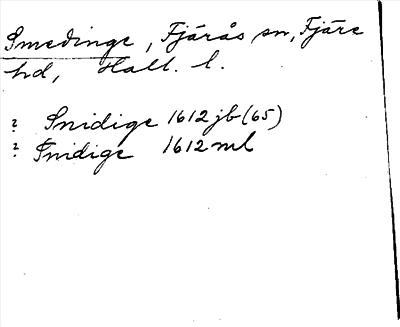 Smedinge, Fjärås sn, Fjäre
hd, Hall. l.
? Snidige 1612 jb (65)
? Snidige 1612 ml